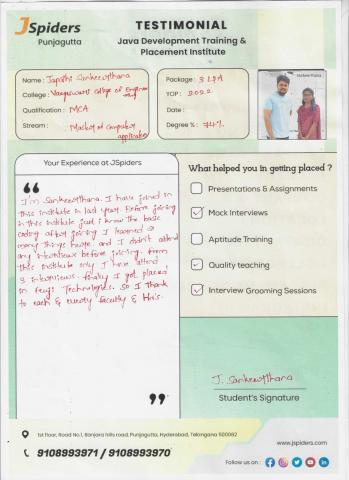 JSpiders
Punjagutta
TESTIMONIAL
Java Development Training &
Placement Institute
Name : Japathi Sankeerthana
College : Vaageswari college of Engineering
Qualification : MCA
Stream : Master of computer
application
Package : 3 LPA
YOP : 2022
Date :
Degree % : 74%
Sankeerthana
Your Experience at JSpiders
“
I'm Sankeerthana. I have joined in
this institute in last year. Before joining
in this institute just i know the basic
coding after joining I learned so
many things here. and I didn't attend
any interviews before joining. from
this institute only I have attend
3 interviews finally I got placed
in Technologies. So I thank
to each & every faculty & Hr's.
”
What helped you in getting placed ?
Presentations & Assignments
Mock Interviews
Aptitude Training
Quality teaching
Interview Grooming Sessions
J. Sankeerthana
Student's Signature
1st floor, Road No.1, Banjara hills road, Punjagutta, Hyderabad, Telangana 500082
9108993971 / 9108993970
www.jspiders.com
Follow us on :